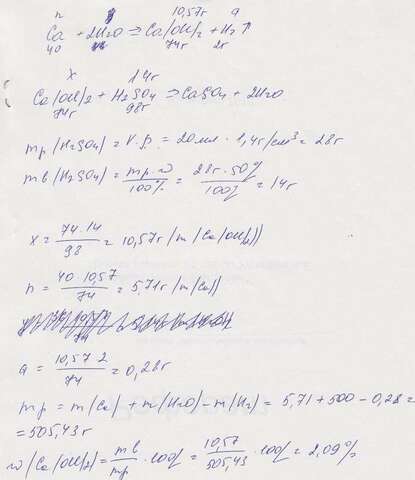 n 10,57г a
Ca + 2H2O => Ca(OH)2 + H2↑
40 74г 2г
x 14г
Ca(OH)2 + H2SO4 => CaSO4 + 2H2O
74г 98г
mp(H2SO4) = V·ρ = 20мл · 1,4г/см³ = 28г
mв(H2SO4) = mp·w/100% = 28г·50%/100% = 14г
x = 74·14/98 = 10,57г (m(Ca(OH)2))
n = 40·10,57/74 = 5,71г (m(Ca))
a = 10,57·2/74 = 0,28г
mp = m(Ca) + m(H2O) - m(H2) = 5,71 + 500 - 0,28 =
= 505,43г
w(Ca(OH)2) = mв/mp · 100% = 10,57/505,43 · 100% = 2,09%